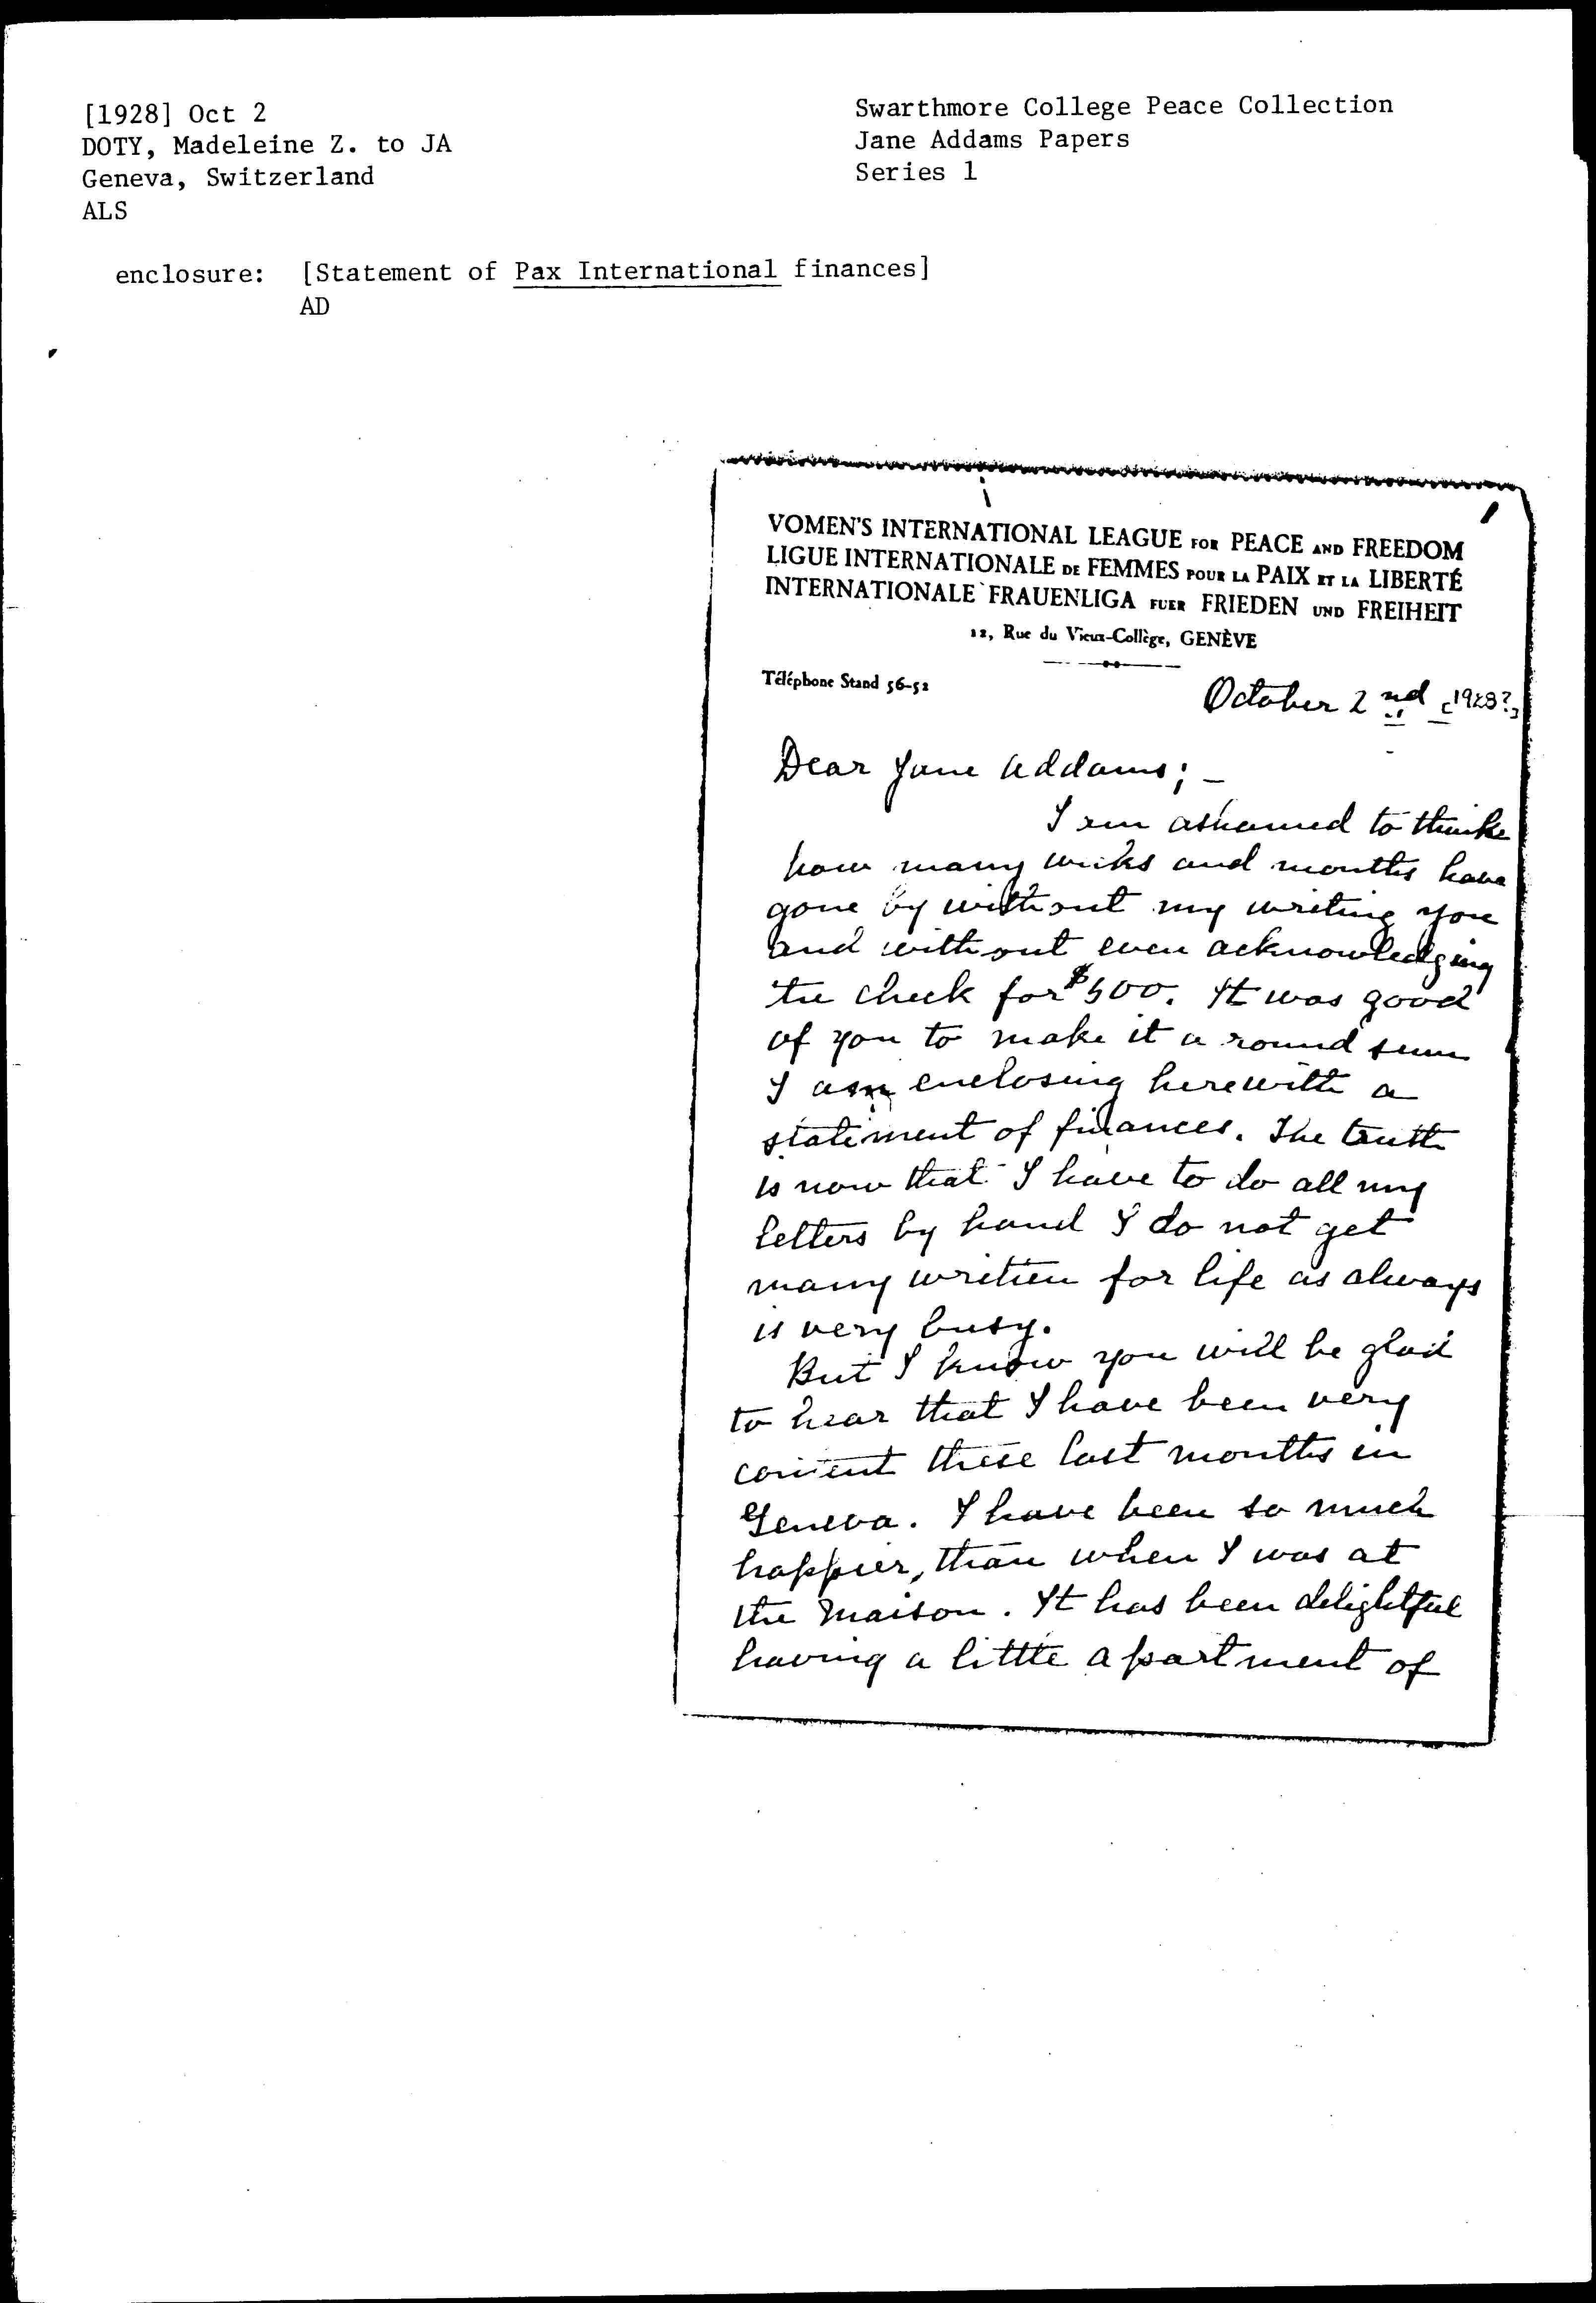 [1928] Oct 2
DOTY, Madeleine Z. to JA
Geneva, Switzerland
ALS
Swarthmore College Peace Collection
Jane Addams Papers
Series 1
enclosure: [Statement of Pax International finances]
AD
1
VOMEN'S INTERNATIONAL LEAGUE FOR PEACE AND FREEDOM
LIGUE INTERNATIONALE DE FEMMES POUR LA PAIX ET LA LIBERTÉ
INTERNATIONALE FRAUENLIGA FUER FRIEDEN UND FREIHEIT
12, Rue du Vieux-Collège, GENÈVE
Téléphone Stand 56-52
October 2nd [1928?]
Dear Jane Addams; -
I am ashamed to think
how many weeks and months have
gone by without my writing you
and without even acknowledging
the check for $500. It was good
of you to make it a round sum
I am enclosing herewith a
statement of finances. The truth
is now that I have to do all my
letters by hand I do not get
many written for life as always
is very busy.
But I know you will be glad
to hear that I have been very
content these last months in
Geneva. I have been so much
happier, than when I was at
the Maison. It has been delightful
having a little apartment of